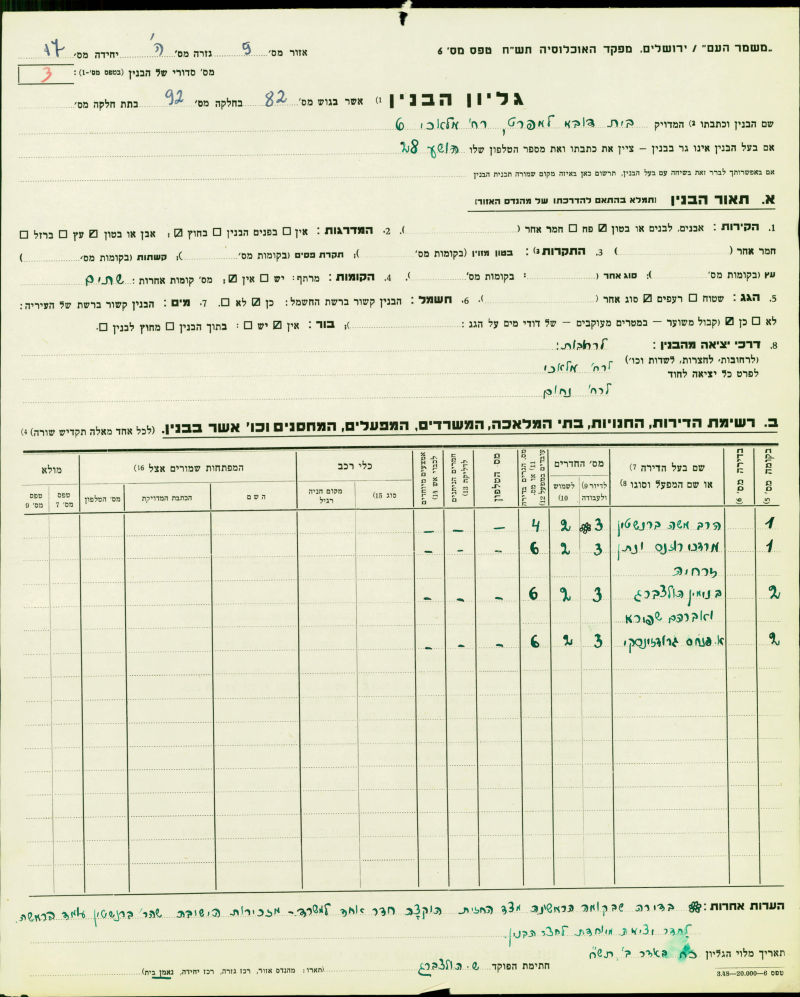 „משמר העם" / ירושלים. מפקד האוכלוסיה תש"ח טפס מס' 6
אזור מס' 9 גזרה מס' ה' יחידה מס' 17
מס' סדורי של הבנין (בטפס מס'-1): 3
גליון הבנין 1) אשר בגוש מס' 82 בחלקה מס' 92 בתת חלקה מס'
שם הבנין וכתבתו 2) המדויק בית דובא למפרט, רח' מלאכי 6
אם בעל הבנין אינו גר בבנין – ציין את כתבתו ואת מספר הטלפון שלו הושע 28
אם באפשרותך לברר זאת בשיחה עם בעל הבנין, תרשום כאן באיזה מקום שמורה תבנית הבנין
א. תאור הבנין (תמלא בהתאם להדרכתו של מהנדס האזור)
1. הקירות: אבנים, לבנים או בטון ☑ פח ☐ חמר אחר ( ). 2. המדרגות: אין ☐ בפנים הבנין ☐ בחוץ ☑; אבן או בטון ☑ עץ ☐ ברזל ☐
חמר אחר ( ) 3. התקרות 3): בטון מזוין (בקומות מס' ); תקרת פסים (בקומות מס' ); קשתות (בקומות מס' )
עץ (בקומות מס' ); סוג אחר ( : בקומות מס' ). 4. הקומות: מרתף: יש ☐ אין ☑; מס' קומות אחרות: שתים
5. הגג: שטוח ☐ רעפים ☑ סוג אחר ( ). 6. חשמל: הבנין קשור ברשת החשמל: כן ☑ לא ☐. 7. מים: הבנין קשור ברשת של העיריה:
לא ☐ כן ☑ (קבול משוער – במטרים מעוקבים – של דודי מים על הגג: ); בור: אין ☑ יש ☐: בתוך הבנין ☐ מחוץ לבנין ☐.
8. דרכי יציאה מהבנין: לרחובות:
(לרחובות, לחצרות, לשדות וכו') לרח' מלאכי
לפרט כל יציאה לחוד לרח' נחום
ב. רשימת הדירות, החנויות, בתי המלאכה, המשרדים, המפעלים, המחסנים וכו' אשר בבנין. (לכל אחד מאלה תקדיש שורה) 4)
בקומה מס' 5) בדירה מס' 6) שם בעל הדירה 7) או שם המפעל וסוגו 8) מס' החדרים לדיור 9) ולעבודה לשמוש 10) מס. הגרים בדירה 11) או מס. עובדים במפעל 12) מס הטלפון חמרים הניתנים לדליקה 13) אמצעים מיוחדים לכבוי אש 14) כלי רכב סוג 15) מקום חניה רגיל המפתחות שמורים אצל 16) השם הכתבת המדויקת מס' הטלפון מולא טפס מס' 7 טפס מס' 9
1 הרב משה ברנשטין 3 2 4 – – –
1 מרדכי רוזנס ונתן 3 2 6 – – –
זרחיה
2 בנימין הולצברג 3 2 6 – – –
ואברהם שפורא
2 א. פנחס גרודזינסקי 3 2 6 – – –
הערות אחרות: בדירה שבקומה הראשונה מצד החזית הוקצב חדר אחד למשרד – מזכירות הישיבת שהר' ברנשטין עומד בראשה.
לחדר יציאה מיוחדת לחצר הבנין.
תאריך מלוי הגליון כ"ח באדר ב', תש"ח
חתימת הפוקד ש. הולצברג (תארו: מהנדס אזור, רכז גזרה, רכז יחידה, נאמן בית)
טפס 6–20.000–3.48